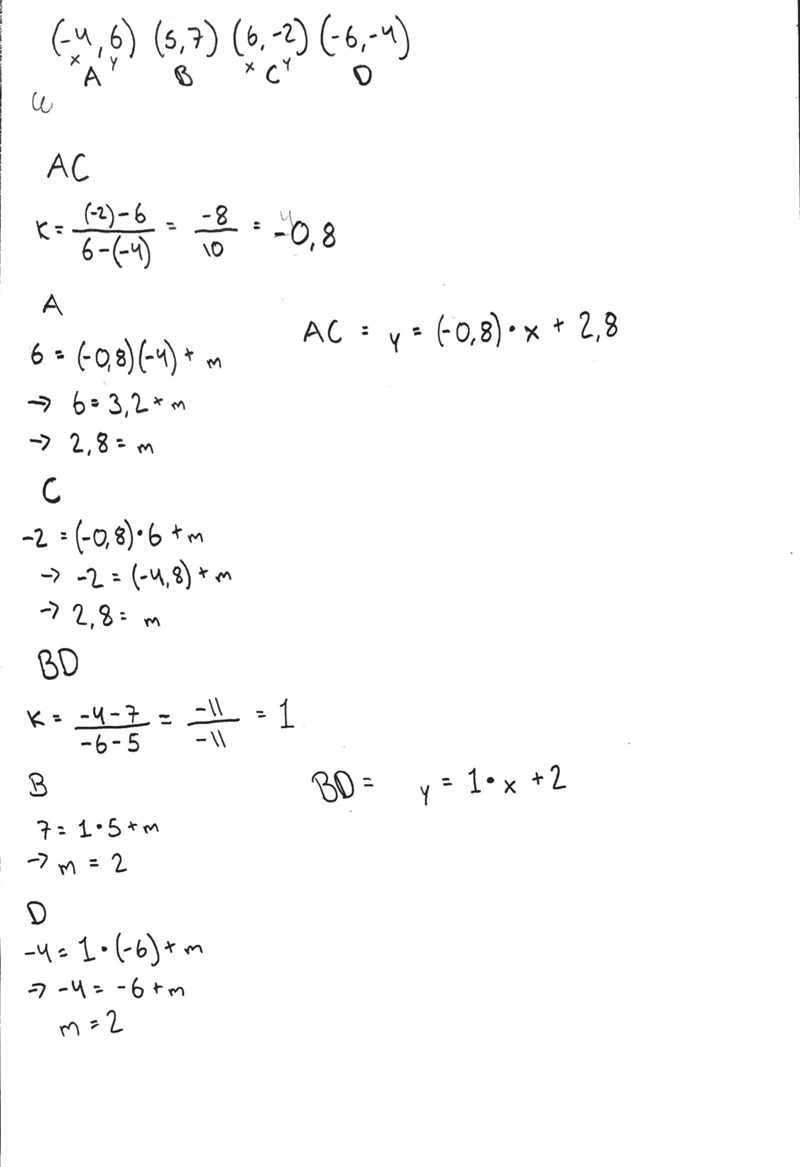 (-4, 6) (5, 7) (6, -2) (-6, -4)
x y x y
A B C D
AC
K = (-2)-6 / 6-(-4) = -8 / 10 = -0,8
A
AC = y = (-0,8)·x + 2,8
6 = (-0,8)(-4) + m
→ 6 = 3,2 + m
→ 2,8 = m
C
-2 = (-0,8)·6 + m
→ -2 = (-4,8) + m
→ 2,8 = m
BD
K = -4-7 / -6-5 = -11 / -11 = 1
B
BD = y = 1·x + 2
7 = 1·5 + m
→ m = 2
D
-4 = 1·(-6) + m
→ -4 = -6 + m
m = 2